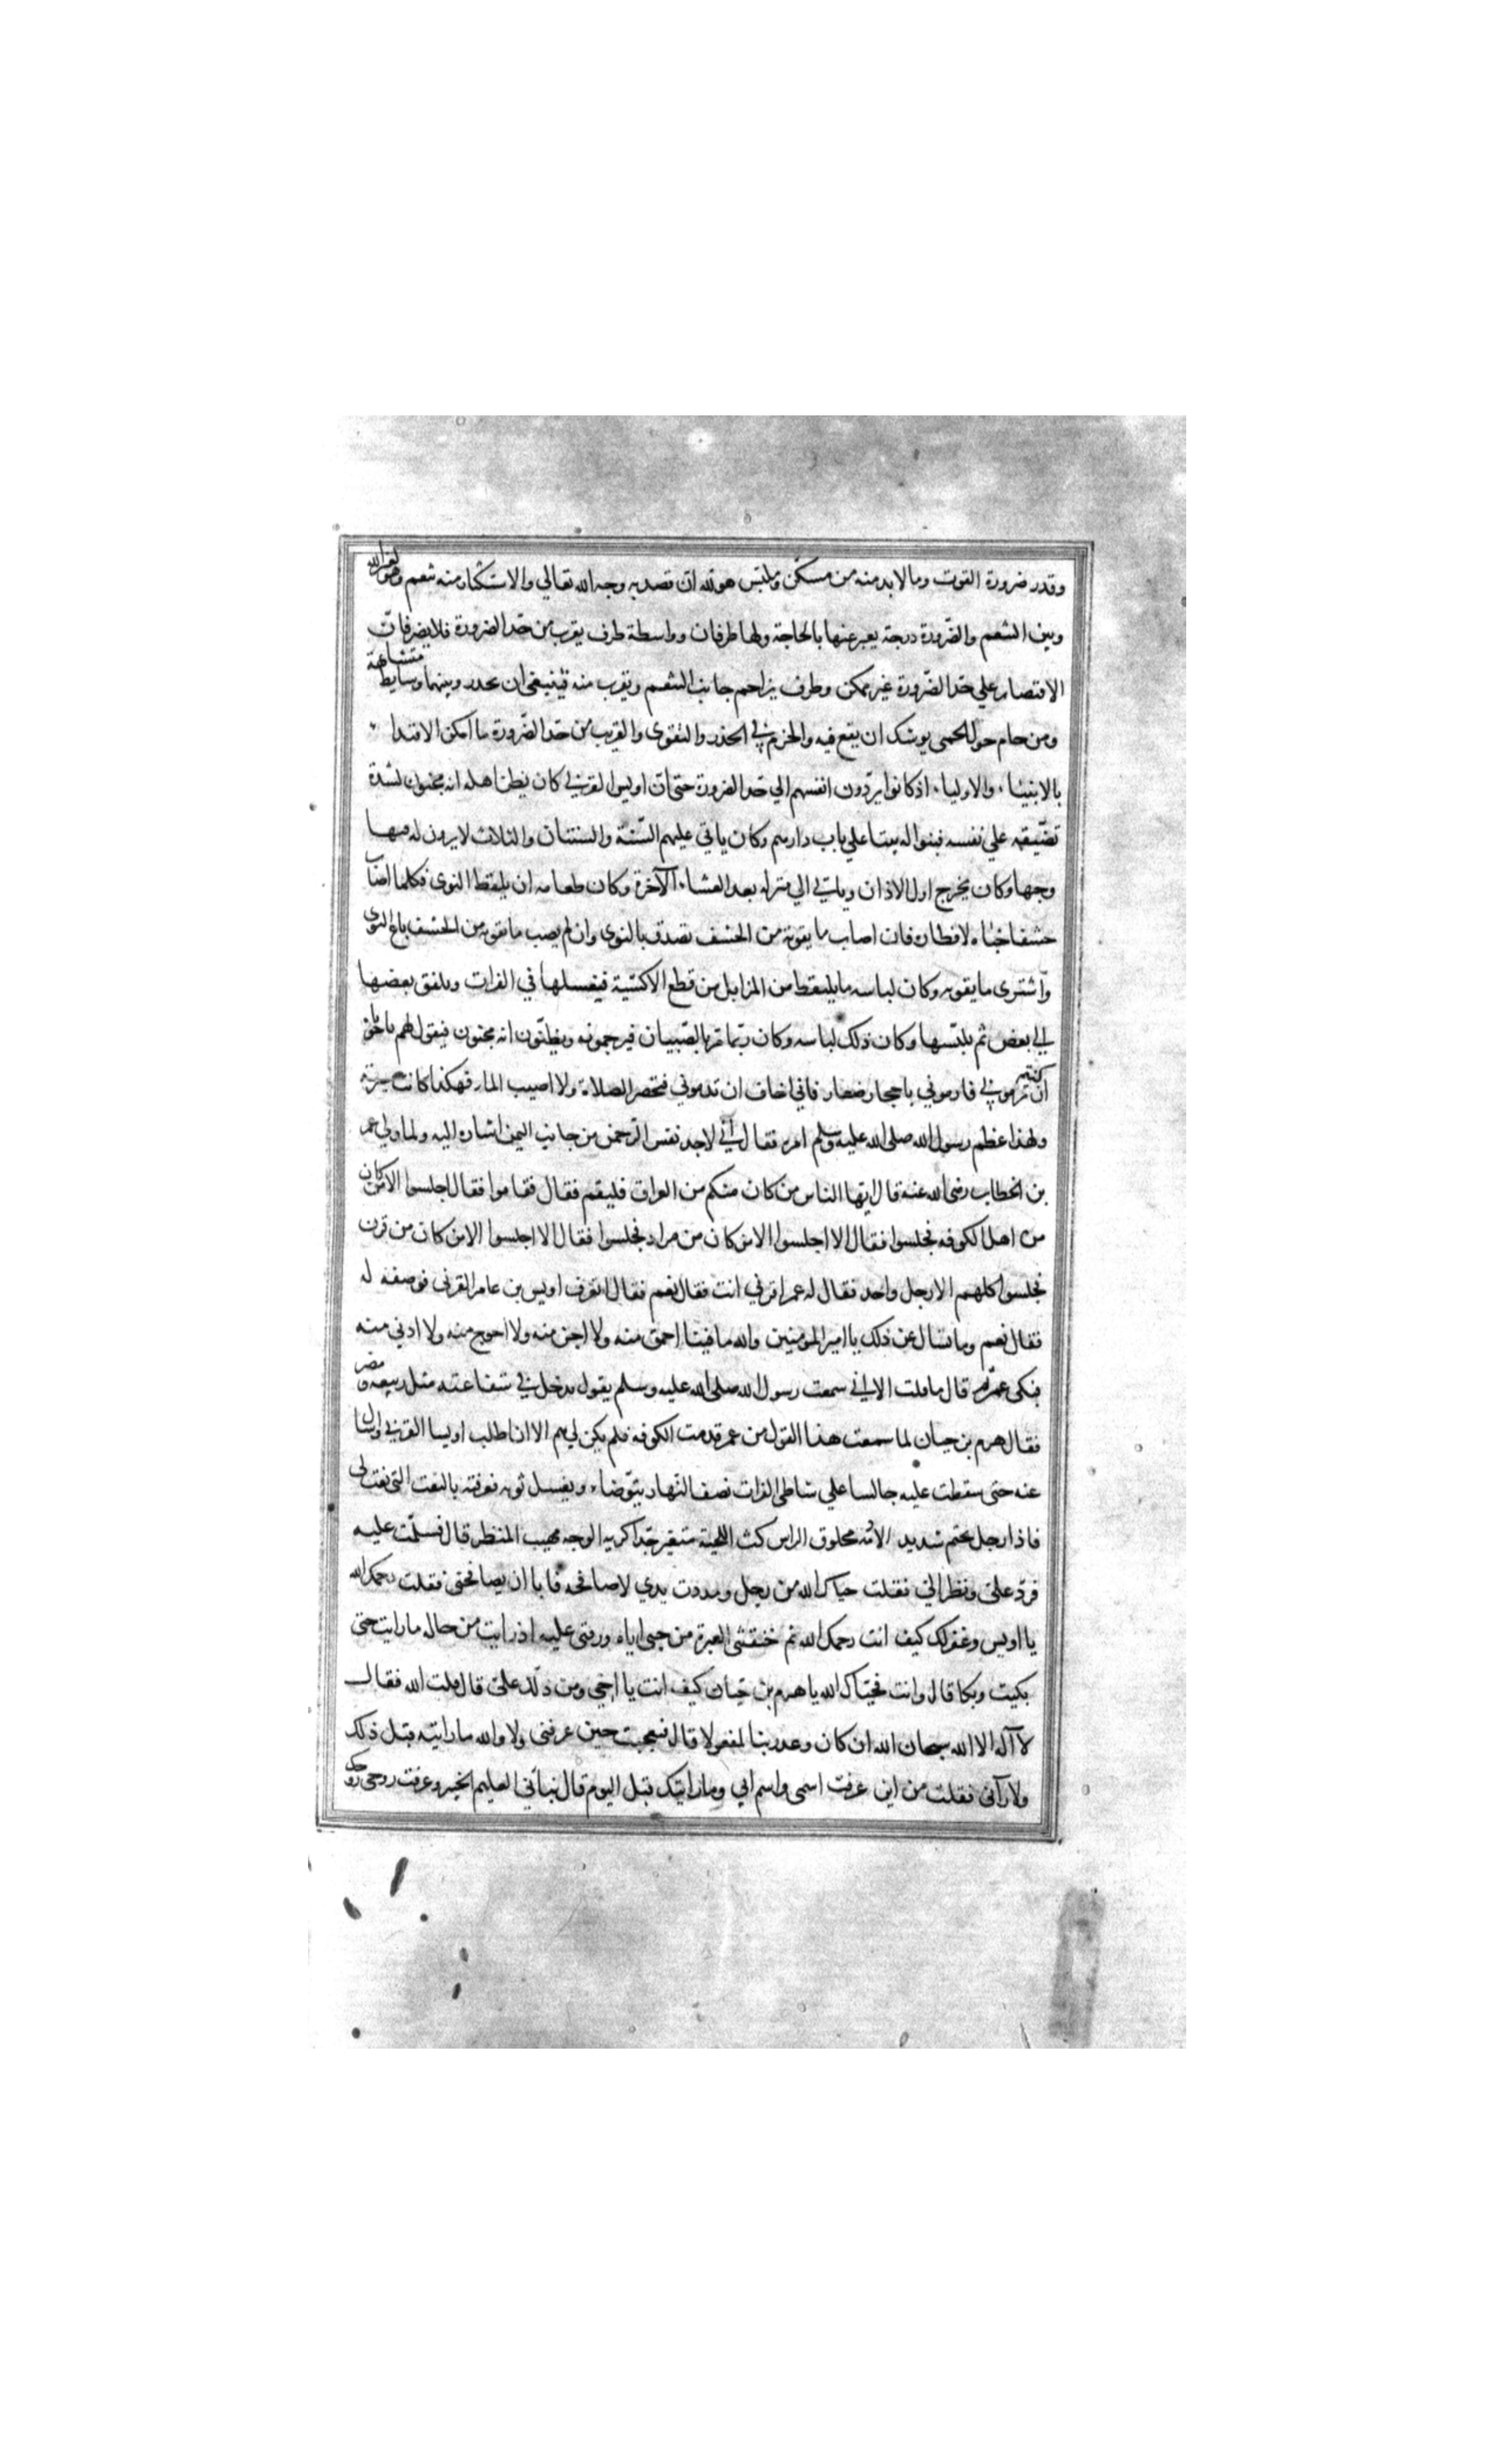 وقدر ضرورة القوت وما لابد منه من مسكن وملبس هو لله ان قصد به وجه الله تعالي والاستكثار منه تنعم وهو لغير الله
وبين التنعم والضرورة درجة يعبر عنها بالحاجة ولها طرفان وواسطة طرف يقرب من حد الضرورة فلا يضر فان
الاقتصار علي حد الضرورة غير ممكن وطرف يزاحم جانب التنعم ويقرب منه فينبغي ان يحذر وبينهما وسايط متشابهة
ومن حام حول الحمي يوشك ان يقع فيه والحزم في الحذر والتقوي والقرب من حد الضرورة ما امكن الاقتدا
بالانبيا والاوليا اذ كانوا يردون انفسهم الي حد الضرورة حتي ان اويس القرني كان يظن اهله انه مجنون لشدة
تضييقه علي نفسه فبنوا له بيتا علي باب دارهم وكان ياتي عليهم السنة والسنتان والثلاث لا يرون له فيها
وجها وكان يخرج اول الاذان وياتي الي منزله بعد العشا الآخرة وكان طعامه ان يلتقط النوي فكلما اصاب
حشفا خباه لافطاره فان اصاب ما يقوته من الحشف تصدق بالنوي وان لم يصب ما يقوته من الحشف باع النوي
واشتري ما يقوته وكان لباسه ما يلتقط من المزابل من قطع الاكسية فيغسلها في الفرات ويلفق بعضها
الي بعض ثم يلبسها وكان ذلك لباسه وكان ربما مر بالصبيان فيرجمونه ويظنون انه مجنون فيقول لهم يا اخوتي
ان كنتم ترموني فارموني باحجار صغار فاني اخاف ان تدموني فتحضر الصلاة ولا اصيب الما فهكذا كانت سيرته
ولهذا عظم رسول الله صلي الله عليه وسلم امره فقال اني لاجد نفس الرحمن من جانب اليمن اشارة اليه ولما ولي عمر
بن الخطاب رضي الله عنه قال ايها الناس من كان منكم من العراق فليقم فقال فقاموا فقال اجلسوا الا من كان
من اهل الكوفه فجلسوا فقال الا اجلسوا الا من كان من مراد فجلسوا فقال الا اجلسوا الا من كان من قرن
فجلسوا كلهم الا رجل واحد فقال له عمر اقرني انت فقال نعم فقال اتعرف اويس بن عامر القرني فوصفه له
فقال نعم وما تسال عن ذلك يا امير المومنين والله ما فينا احمق منه ولا اجن منه ولا احوج منه ولا ادني منه
فبكي عمر ثم قال ما قلت الا لاني سمعت رسول الله صلي الله عليه وسلم يقول يدخل في شفاعته مثل ربيعه ومضر
فقال هرم بن حيان لما سمعت هذا القول من عمر قدمت الكوفه فلم يكن لي هم الا ان اطلب اويسا القرني واسال
عنه حتي سقطت عليه جالسا علي شاطي الفرات نصف النهار يتوضاء ويغسل ثوبه فعرفته بالنعت التي نعت لي
فاذا رجل شديد الادمه محلوق الراس كث اللحية متغير جدا كريه الوجه مهيب المنظر قال فسلمت عليه
فرد علي ونظر الي فقلت حياك الله من رجل ومددت يدي لاصافحه فابا ان يصافحني فقلت رحمك الله
يا اويس وغفر لك كيف انت رحمك الله ثم خنقتني العبرة من حبي اياه ورقتي عليه اذ رايت من حاله ما رايت حتي
بكيت وبكا قال وانت فحياك الله يا هرم بن حيان كيف انت يا اخي ومن دلك علي قال قلت الله فقال
لا آله الا الله سبحان الله ان كان وعد ربنا لمفعولا قال فعجبت حين عرفني ولا والله ما رايته قبل ذلك
ولا رآني فقلت من اين عرفت اسمي واسم ابي وما رايتك قبل اليوم قال نباني العليم الخبير وعرفت روحي روحك